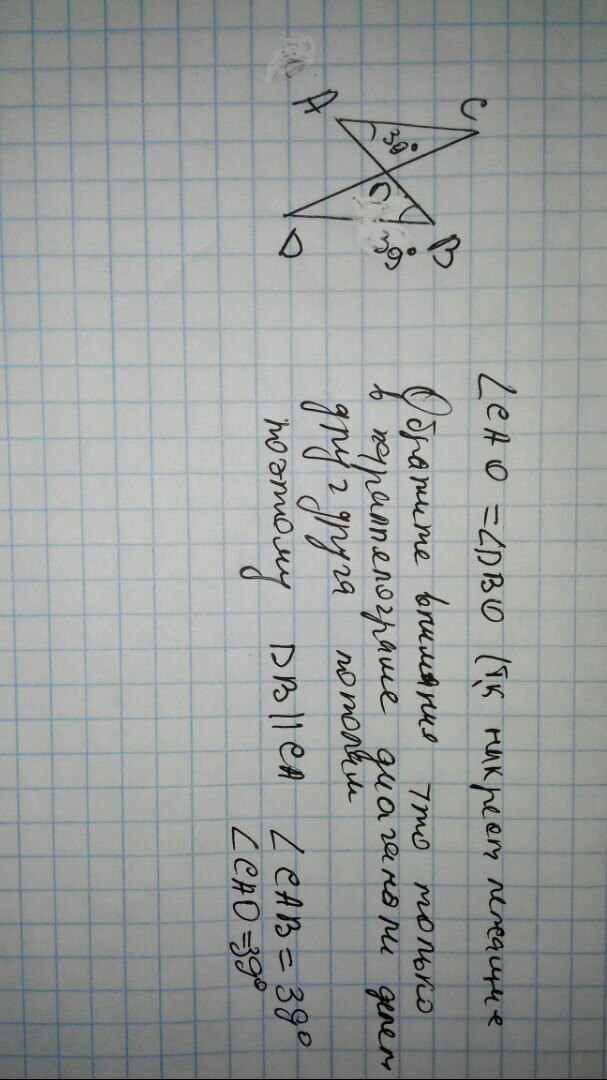 A C
39°
O
39°
D B
∠CAO = ∠DBO (тк накрест лежащие
Обратите внимание что только
в параллелограме диаганали делет
друг друга поторам
поэтому DB || CA ∠CAB = 39°
∠CAO = 39°